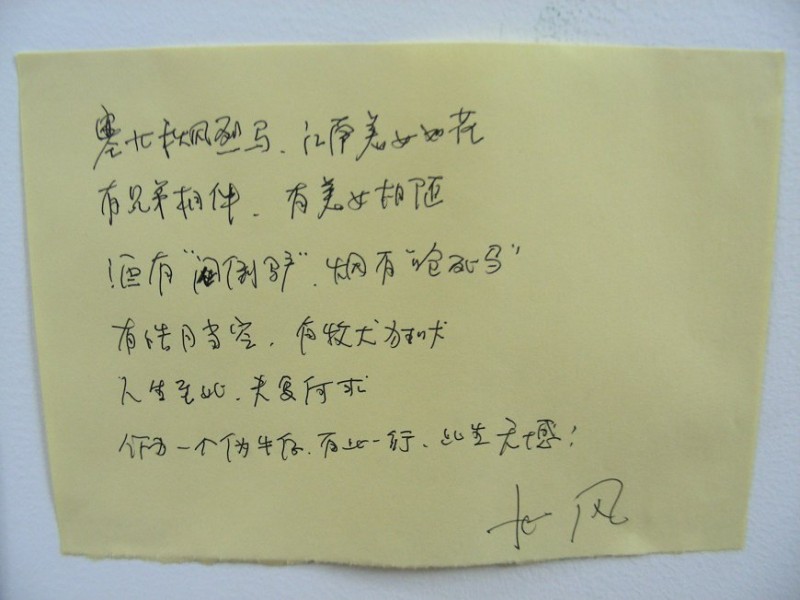 塞北秋风烈马、江南美女如花
有兄弟相伴、有美女相随
酒有“闷倒驴”、烟有“呛死马”
有皓月当空、有牧犬狂吠
人生至此、夫复何求
作为一个伪牛仔、有此一行、此生无憾!
长风